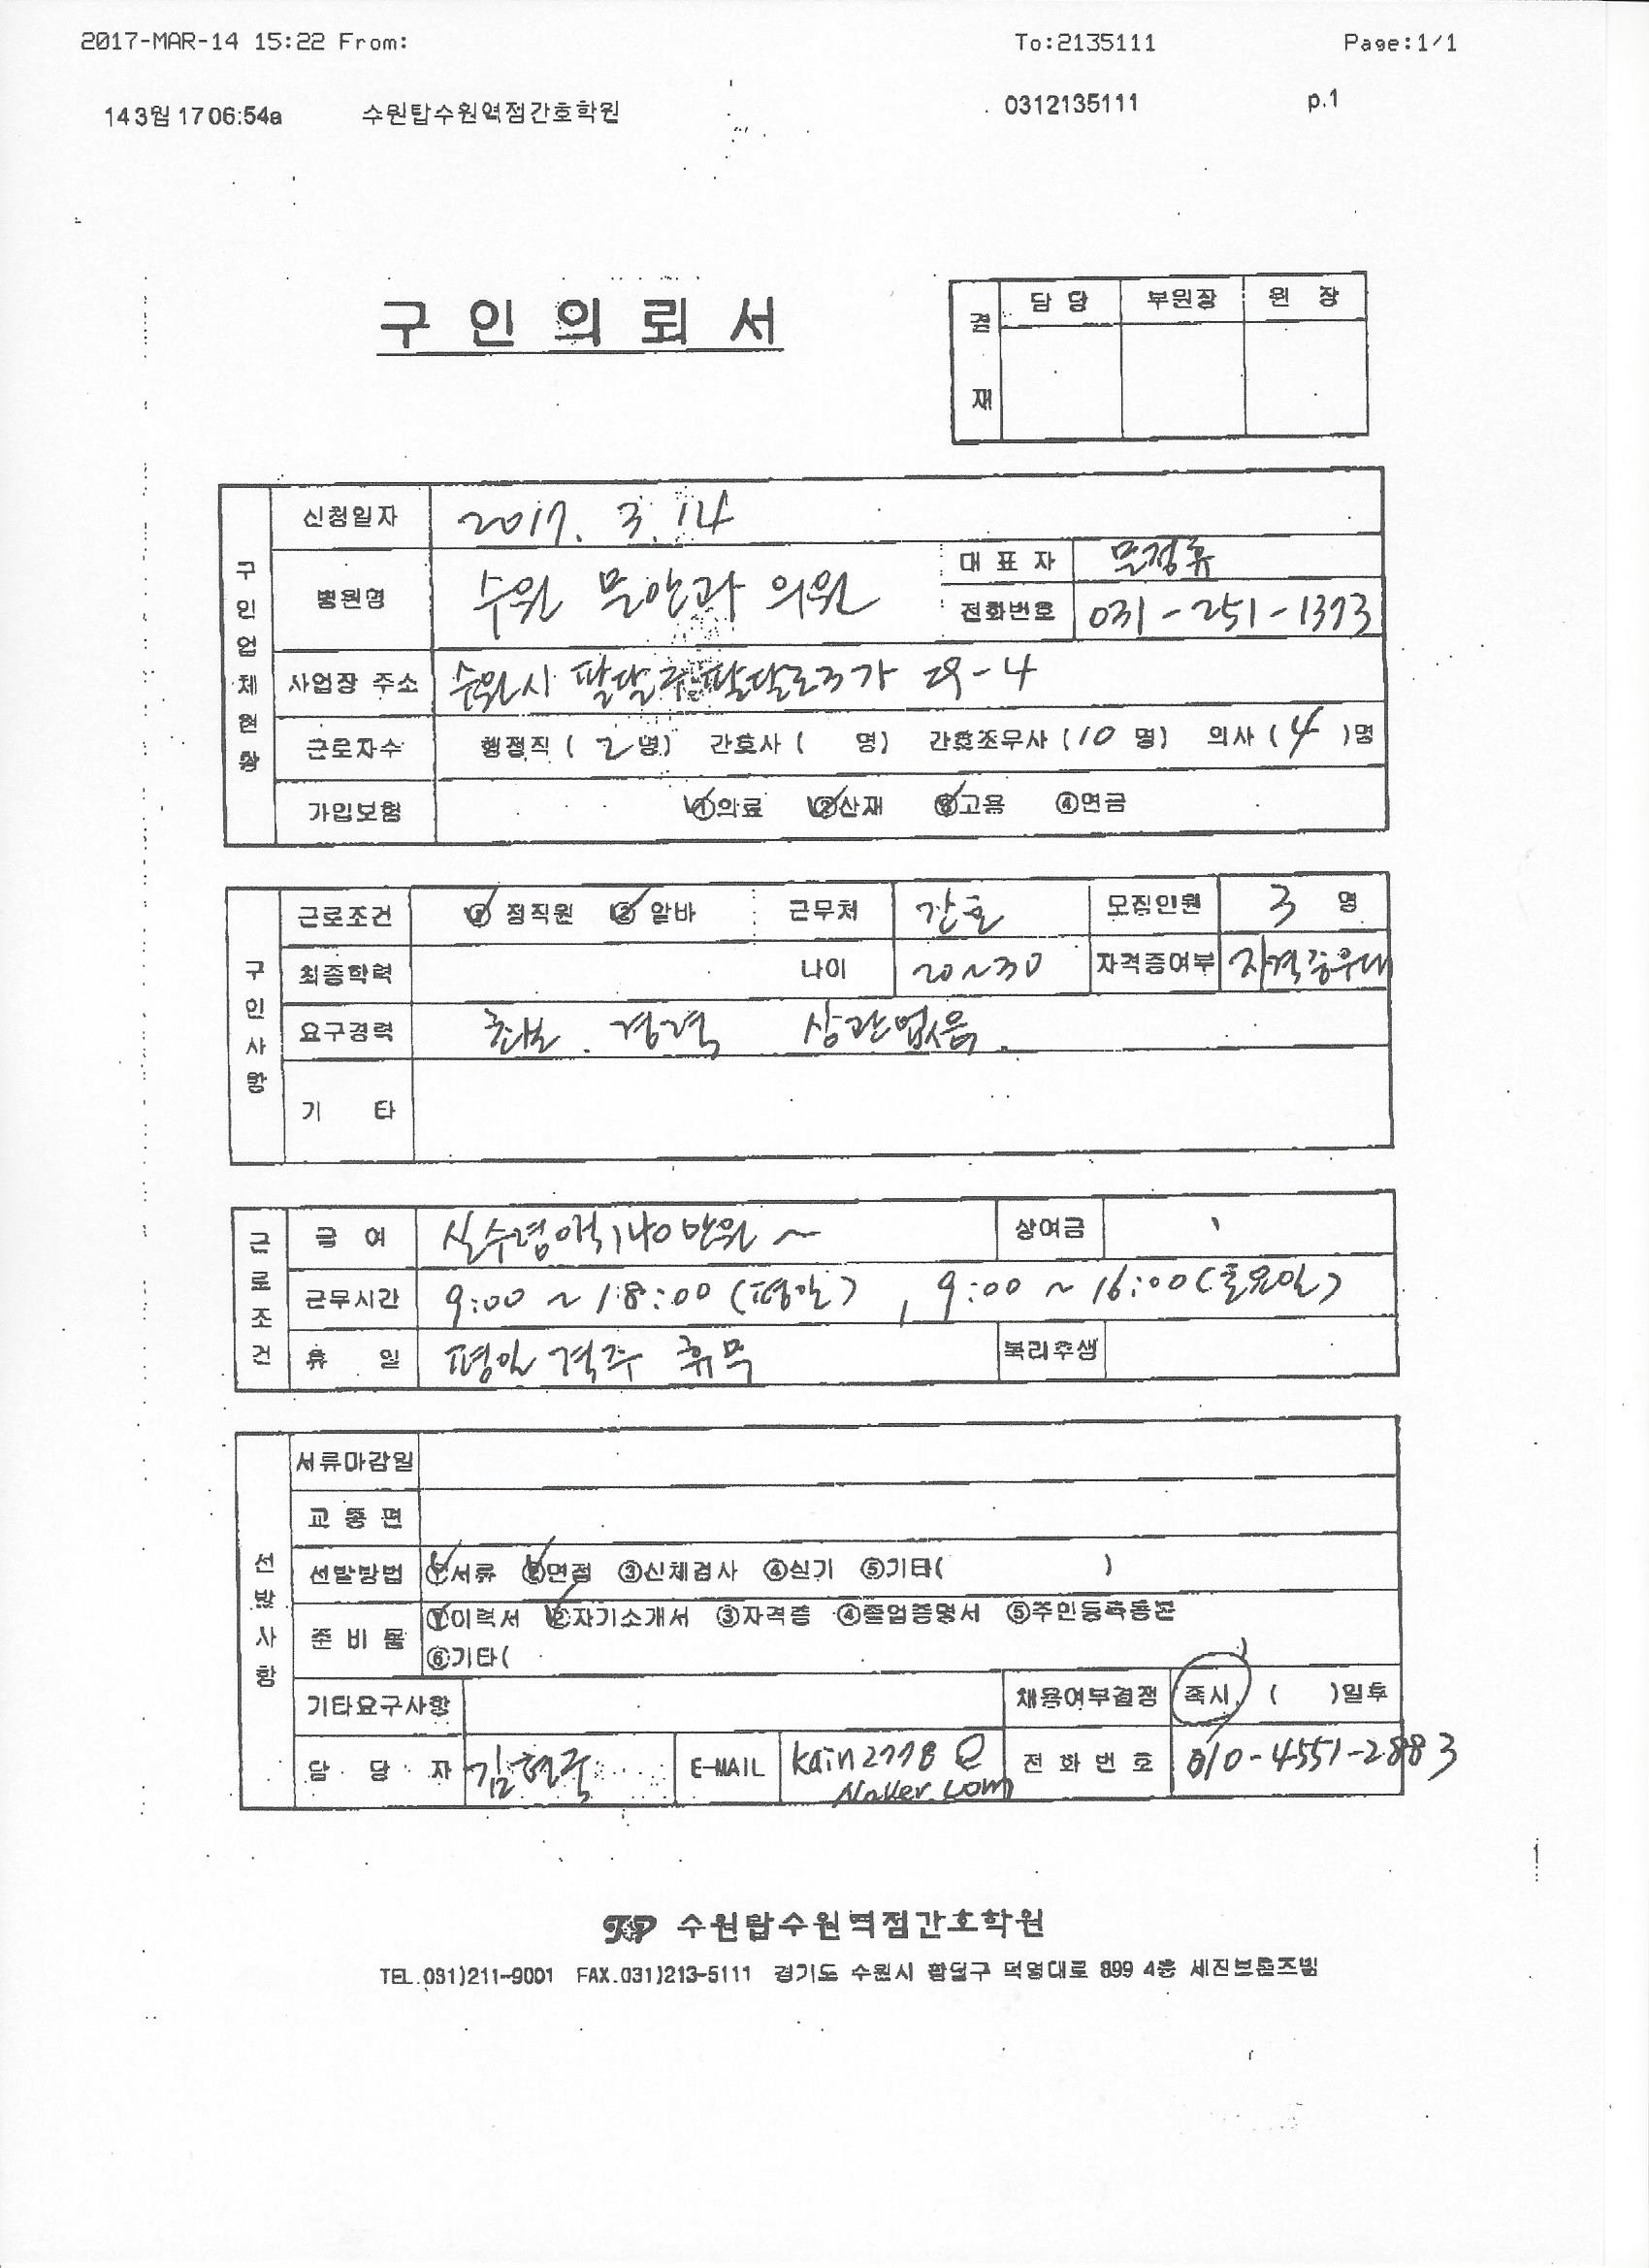 2017-MAR-14 15:22 From: To:2135111 Page:1/1
14 3월 17 06:54a 수원탑수원역점간호학원 0312135111 p.1
구 인 의 뢰 서
결재 담당 부원장 원 장
구인업체현황
신청일자 2017. 3. 14
병원명 수원 문안과 의원 대표자 문정휴
전화번호 031-251-1373
사업장 주소 수원시 팔달구 팔달로3가 29-4
근로자수 행정직 ( 2 명) 간호사 ( 명) 간호조무사 (10 명) 의사 ( 4 )명
가입보험 ①의료 ②산재 ③고용 ④연금
구인사항
근로조건 ① 정직원 ② 알바 근무처 간호 모집인원 3 명
최종학력 나이 20~30 자격증여부 자격증우대
요구경력 초보. 경력 상관없음.
기 타
근로조건
급 여 실수령액 140만원 ~ 상여금
근무시간 9:00 ~ 18:00 (평일), 9:00 ~ 16:00 (토요일)
휴 일 평일 격주 휴무 복리후생
선발사항
서류마감일
교 통 편
선발방법 ①서류 ②면접 ③신체검사 ④실기 ⑤기타( )
준 비 물 ①이력서 ②자기소개서 ③자격증 ④졸업증명서 ⑤주민등록등본
⑥기타( )
기타요구사항 채용여부결정 즉시, ( )일후
담 당 자 김현국 E-MAIL kain2778@ 전 화 번 호 010-4551-2883
Naver.com
TOP 수원탑수원역점간호학원
TEL.031)211-9001 FAX.031)213-5111 경기도 수원시 팔달구 덕영대로 899 4층 세진브론즈빌